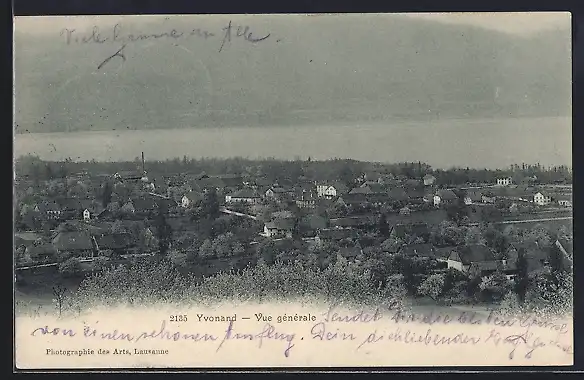 Viele Grüsse an Alle.
2135 Yvonand — Vue générale
Sendet die besten Grüsse
von einem schönen Ausflug. Dein dich liebender
Photographie des Arts, Lausanne